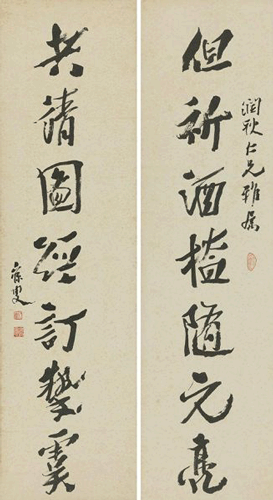 潤秋仁兄雅屬
但祈酒榼隨元亮
共請圖經訂摯虞
寐叟